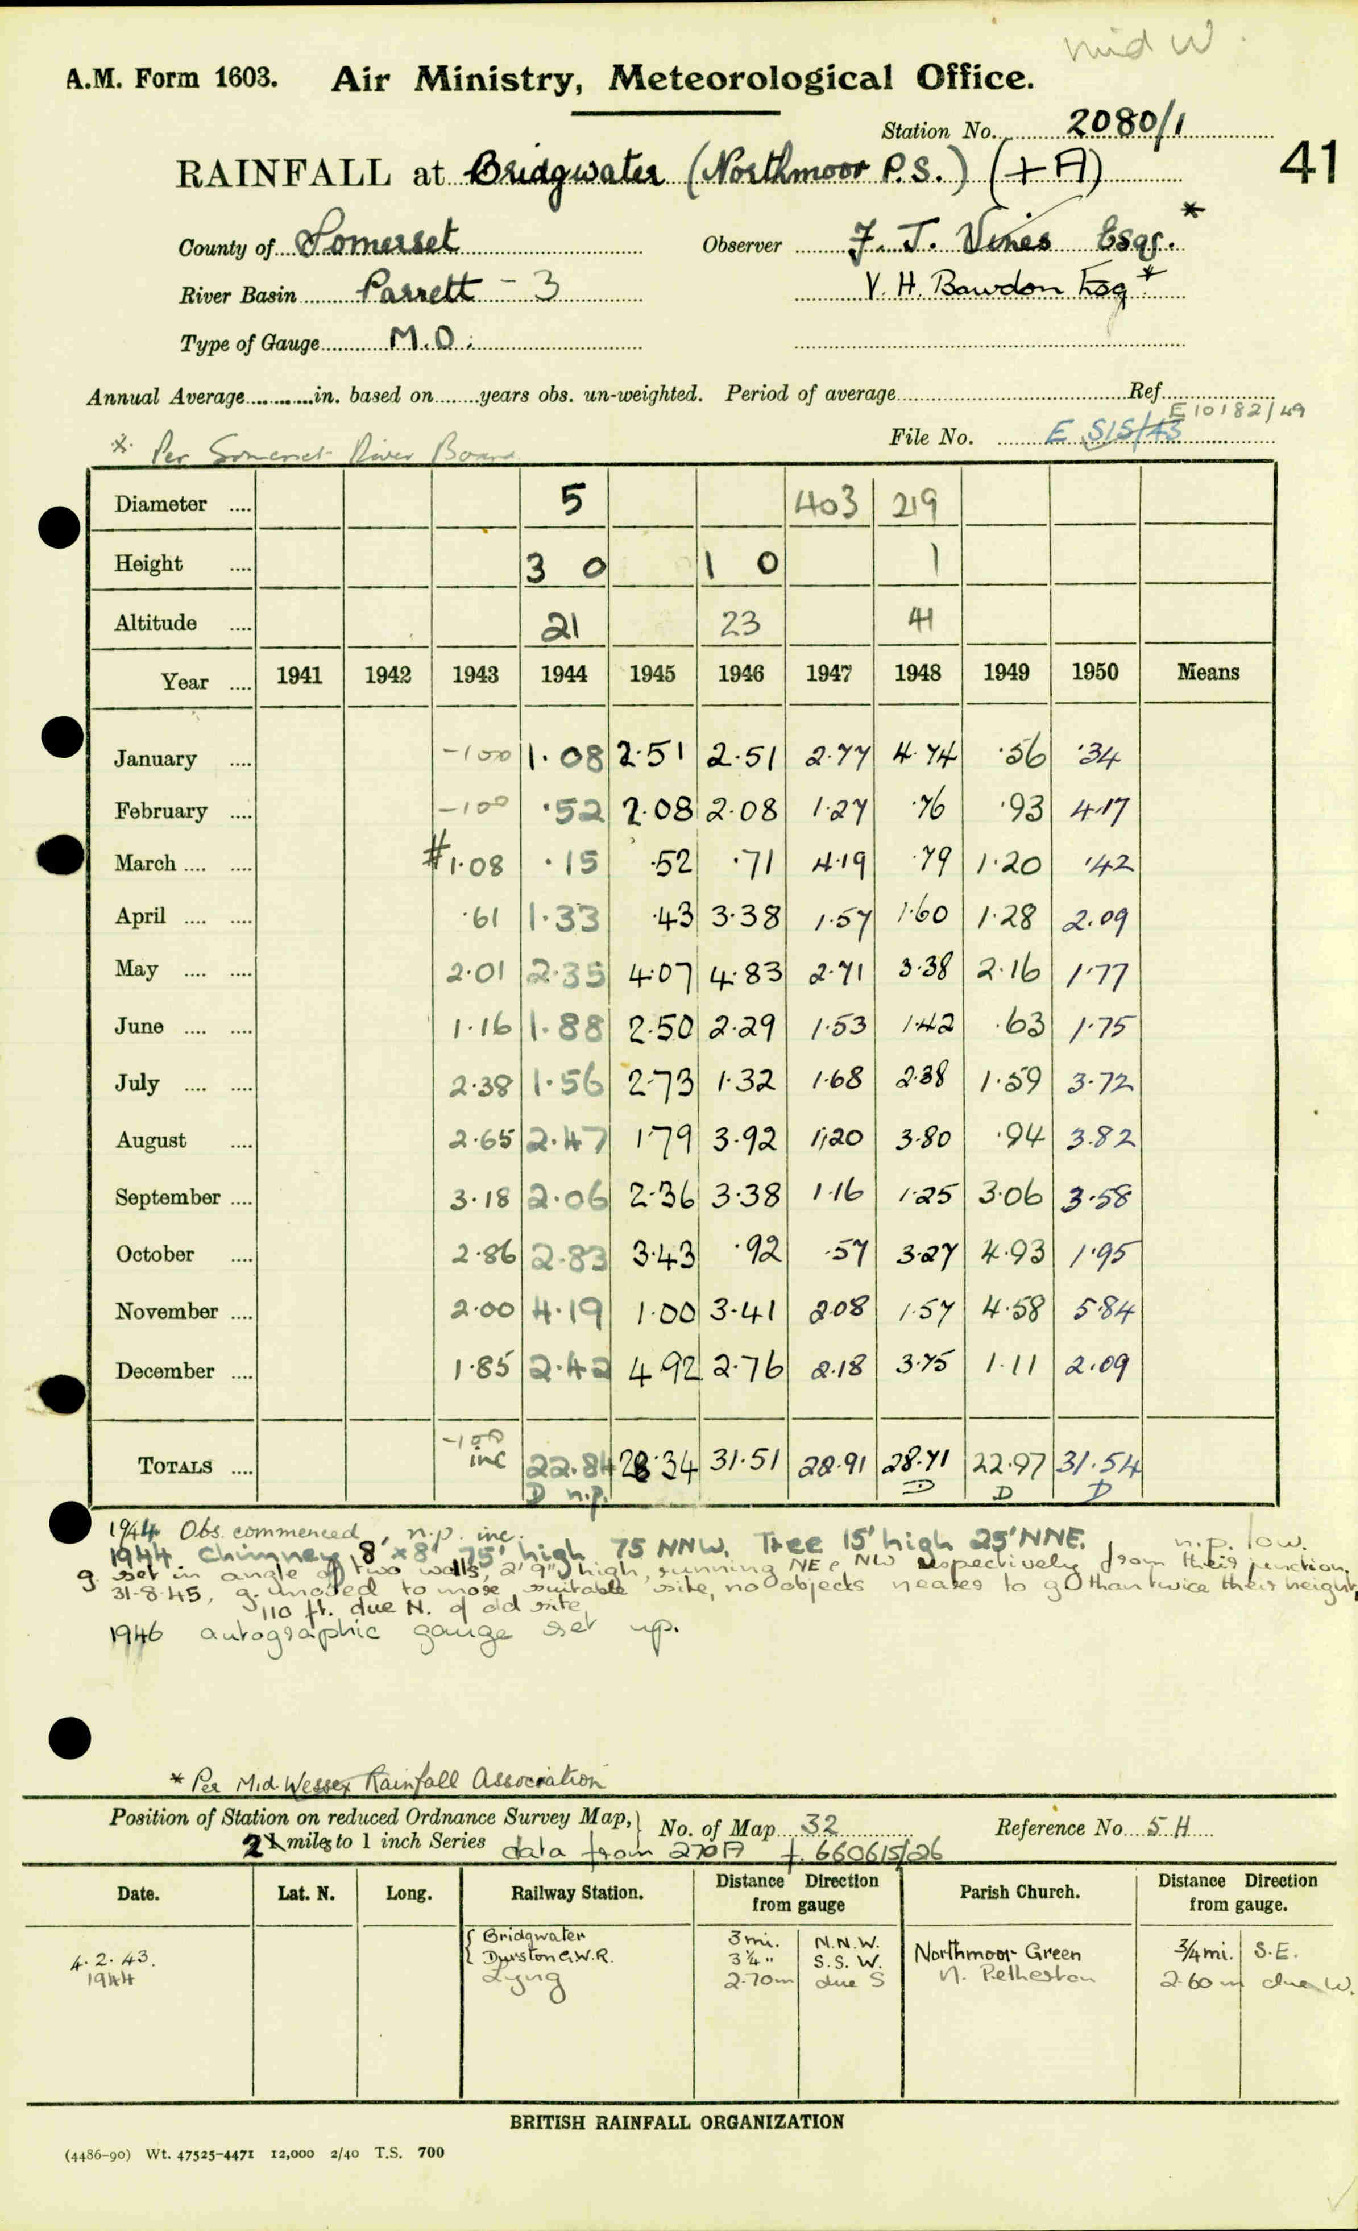 mid W.
A.M. Form 1603. Air Ministry, Meteorological Office.
Station No. 2080/1
41
RAINFALL at Bridgwater (Northmoor P.S.) (+A)
County of Somerset Observer F. J. Vines Esqr. *
River Basin Parrett - 3 V. H. Bawdon Esq *
Type of Gauge M.O.
Annual Average in. based on years obs. un-weighted. Period of average Ref
E10182/49
File No. E 515/43
* Per Somerset River Board
Diameter 5 403 219
Height 3 0 1 0 1
Altitude 21 23 41
Year 1941 1942 1943 1944 1945 1946 1947 1948 1949 1950 Means
January -100 1.08 2.51 2.51 2.77 4.74 .56 .34
February -100 .52 2.08 2.08 1.27 .76 .93 4.17
March # 1.08 .15 .52 .71 4.19 .79 1.20 .42
April .61 1.33 .43 3.38 1.57 1.60 1.28 2.09
May 2.01 2.35 4.07 4.83 2.71 3.38 2.16 1.77
June 1.16 1.88 2.50 2.29 1.53 1.42 .63 1.75
July 2.38 1.56 2.73 1.32 1.68 2.38 1.59 3.72
August 2.65 2.47 1.79 3.92 1.20 3.80 .94 3.82
September 3.18 2.06 2.36 3.38 1.16 1.25 3.06 3.58
October 2.86 2.83 3.43 .92 .57 3.27 4.93 1.95
November 2.00 4.19 1.00 3.41 2.08 1.57 4.58 5.84
December 1.85 2.42 4.92 2.76 2.18 3.75 1.11 2.09
-100
TOTALS inc 22.84 28.34 31.51 22.91 28.71 22.97 31.54
D n.p. D D D
1944 Obs. commenced, n.p. inc. n.p. low.
1944 Chimney 8' x 8' 75' high 75 NNW. Tree 15' high 25' NNE.
g. set in angle of two walls, 2' 9" high, running NE & NW respectively from their junction.
31-8-45, g. moved to more suitable site, no objects nearer to g than twice their height,
110 ft. due N. of old site.
1946 autographic gauge set up.
* Per Mid. Wessex Rainfall Association
Position of Station on reduced Ordnance Survey Map, No. of Map 32 Reference No. 5 H
2 miles to 1 inch Series data from 270A f. 660615/26
Date. Lat. N. Long. Railway Station. Distance from gauge Direction Parish Church. Distance from gauge. Direction
4. 2. 43. Bridgwater 3 mi. N.N.W. Northmoor Green 3/4 mi. S.E.
Durston G.W.R. 3 1/4 " S.S.W.
1944 Lyng 2.70 m due S N. Petherton 2.60 m due W.
BRITISH RAINFALL ORGANIZATION
(4486-90) Wt. 47525-4471 12,000 2/40 T.S. 700